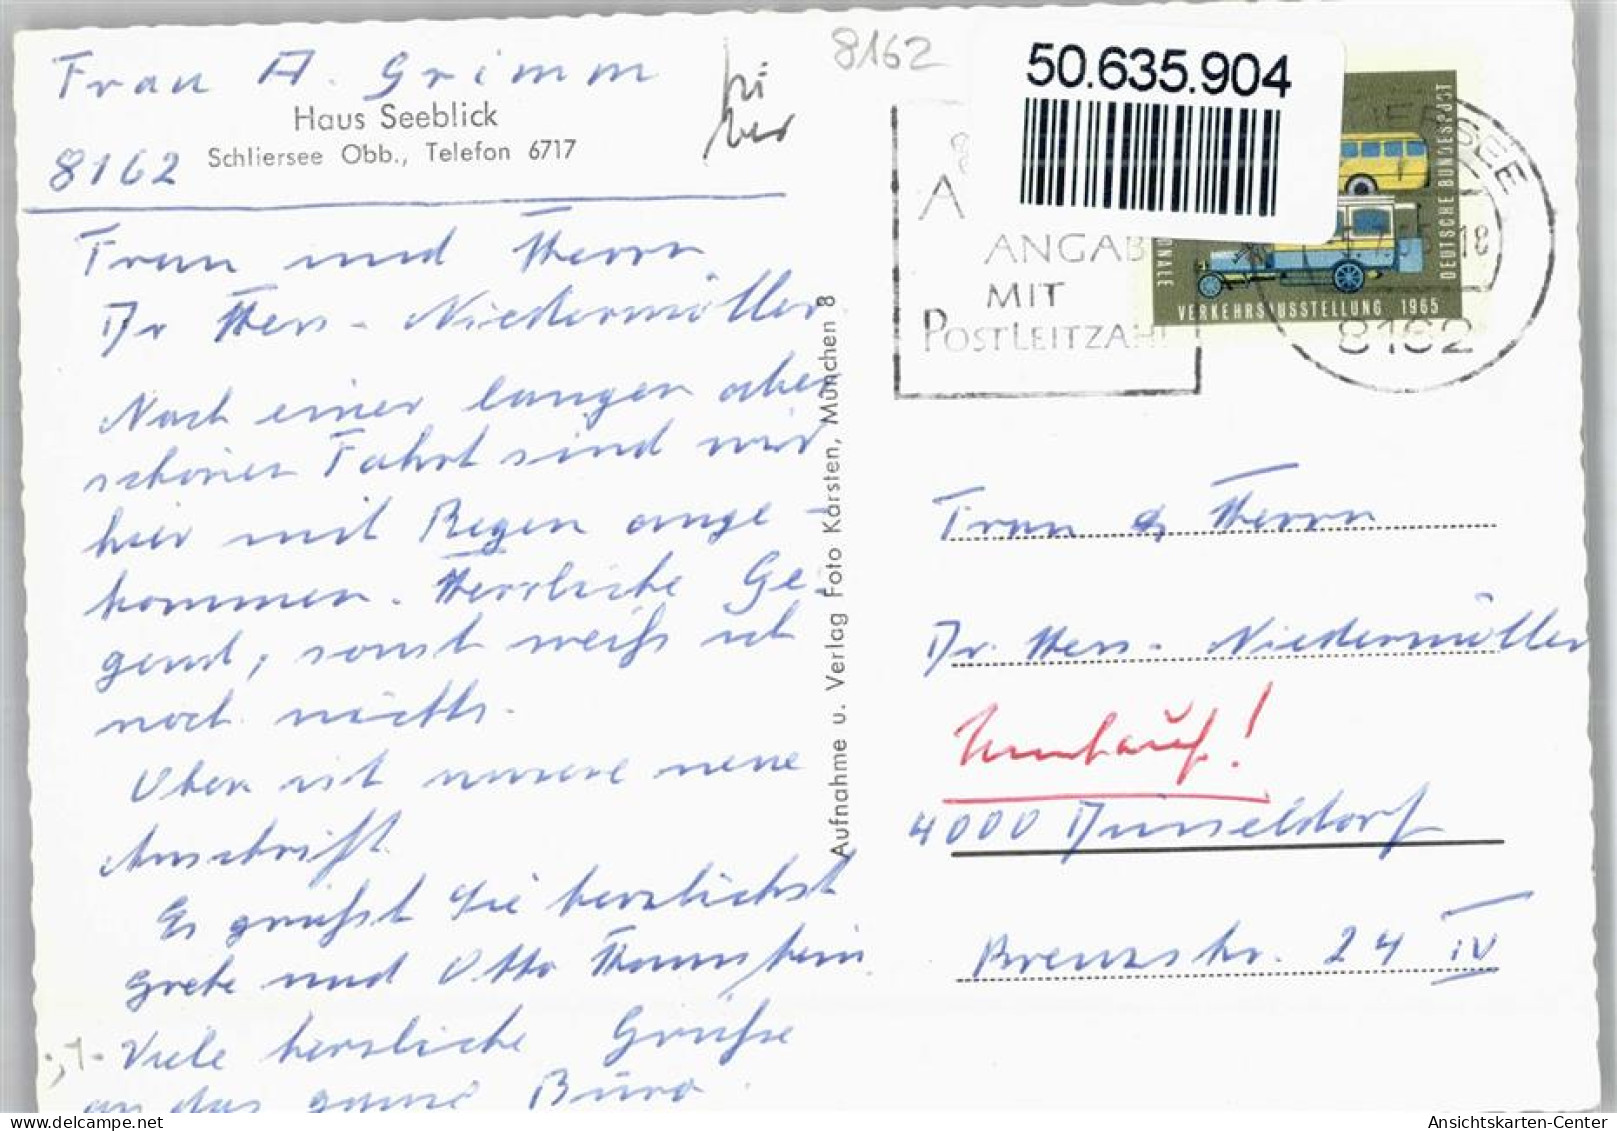 Frau A. Grimm
Haus Seeblick
Schliersee Obb., Telefon 6717
8162
Frau und Herrn
Dr Hers - Niedermöller.
Nach einer langen aber
schönen Fahrt sind wir
hier mit Regen ange-
kommen. Herrliche Ge-
gend, sonst weiß ich
noch nichts.
Oben ist unsere neue
Anschrift.
Es grüßt Sie herzlichst
Grete und Otto
Viele herzliche Grüße
an das ganze Büro.
Aufnahme u. Verlag Foto Karsten, München 8
8162
50.635.904
A
ANGAB
MIT
POSTLEITZAH
DEUTSCHE BUNDESPOST
VERKEHRSAUSSTELLUNG 1965
ONALE
ERSEE
18
8162
Frau & Herrn
Dr. Hers - Niedermöller
Umlauf!
4000 Düsseldorf
Brenzstr. 24 IV
Ansichtskarten-Center